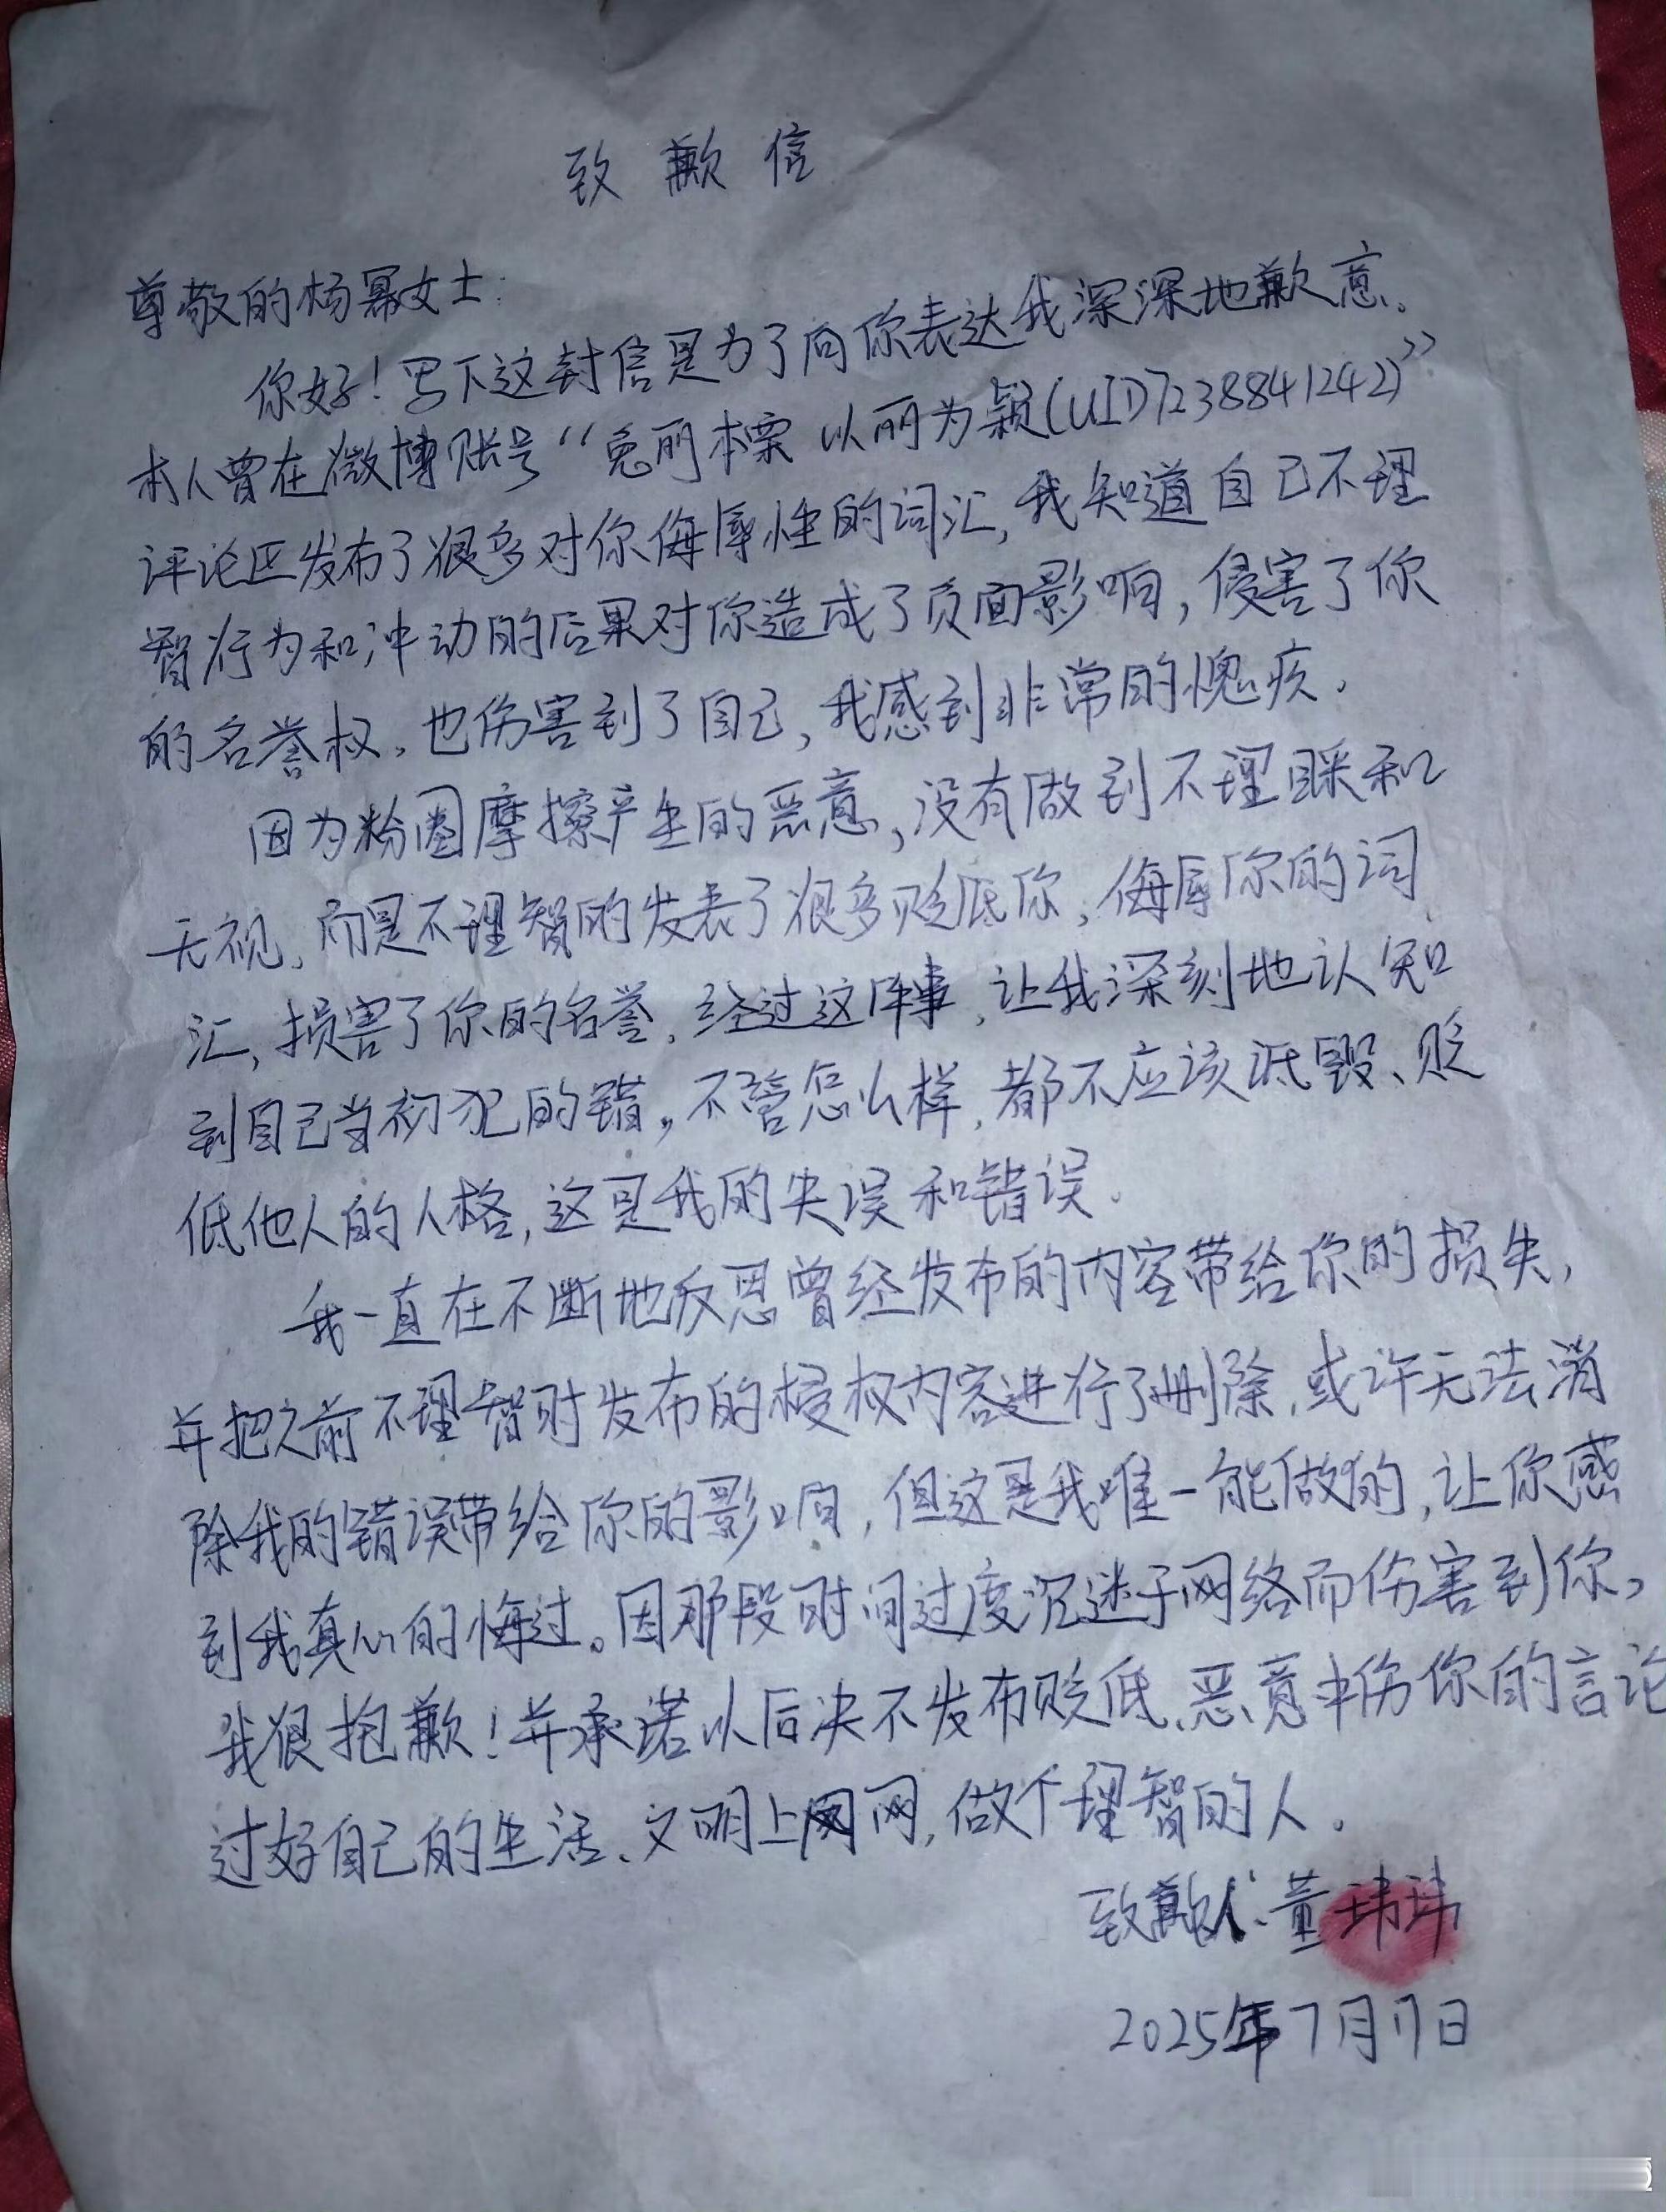 致歉信
尊敬的杨幂女士：
你好！写下这封信是为了向你表达我深深地歉意。
本人曾在微博账号“兔丽本栗 以丽为颖(UID7238841242)”
评论区发布了很多对你侮辱性的词汇，我知道自己不理
智行为和冲动的后果对你造成了负面影响，侵害了你
的名誉权，也伤害到了自己，我感到非常的愧疚。
因为粉圈摩擦产生的恶意，没有做到不理睬和
无视，而是不理智的发表了很多贬低你，侮辱你的词
汇，损害了你的名誉，经过这件事，让我深刻地认知
到自己当初犯的错。不管怎么样，都不应该诋毁、贬
低他人的人格，这是我的失误和错误。
我一直在不断地反思曾经发布的内容带给你的损失，
并把之前不理智时发布的侵权内容进行了删除，或许无法消
除我的错误带给你的影响，但这是我唯一能做的，让你感
到我真心的悔过。因那段时间过度沉迷于网络而伤害到你，
我很抱歉！并承诺以后决不发布贬低、恶意中伤你的言论
过好自己的生活、文明上网，做个理智的人。
致歉人：董玮玮
2025年7月17日